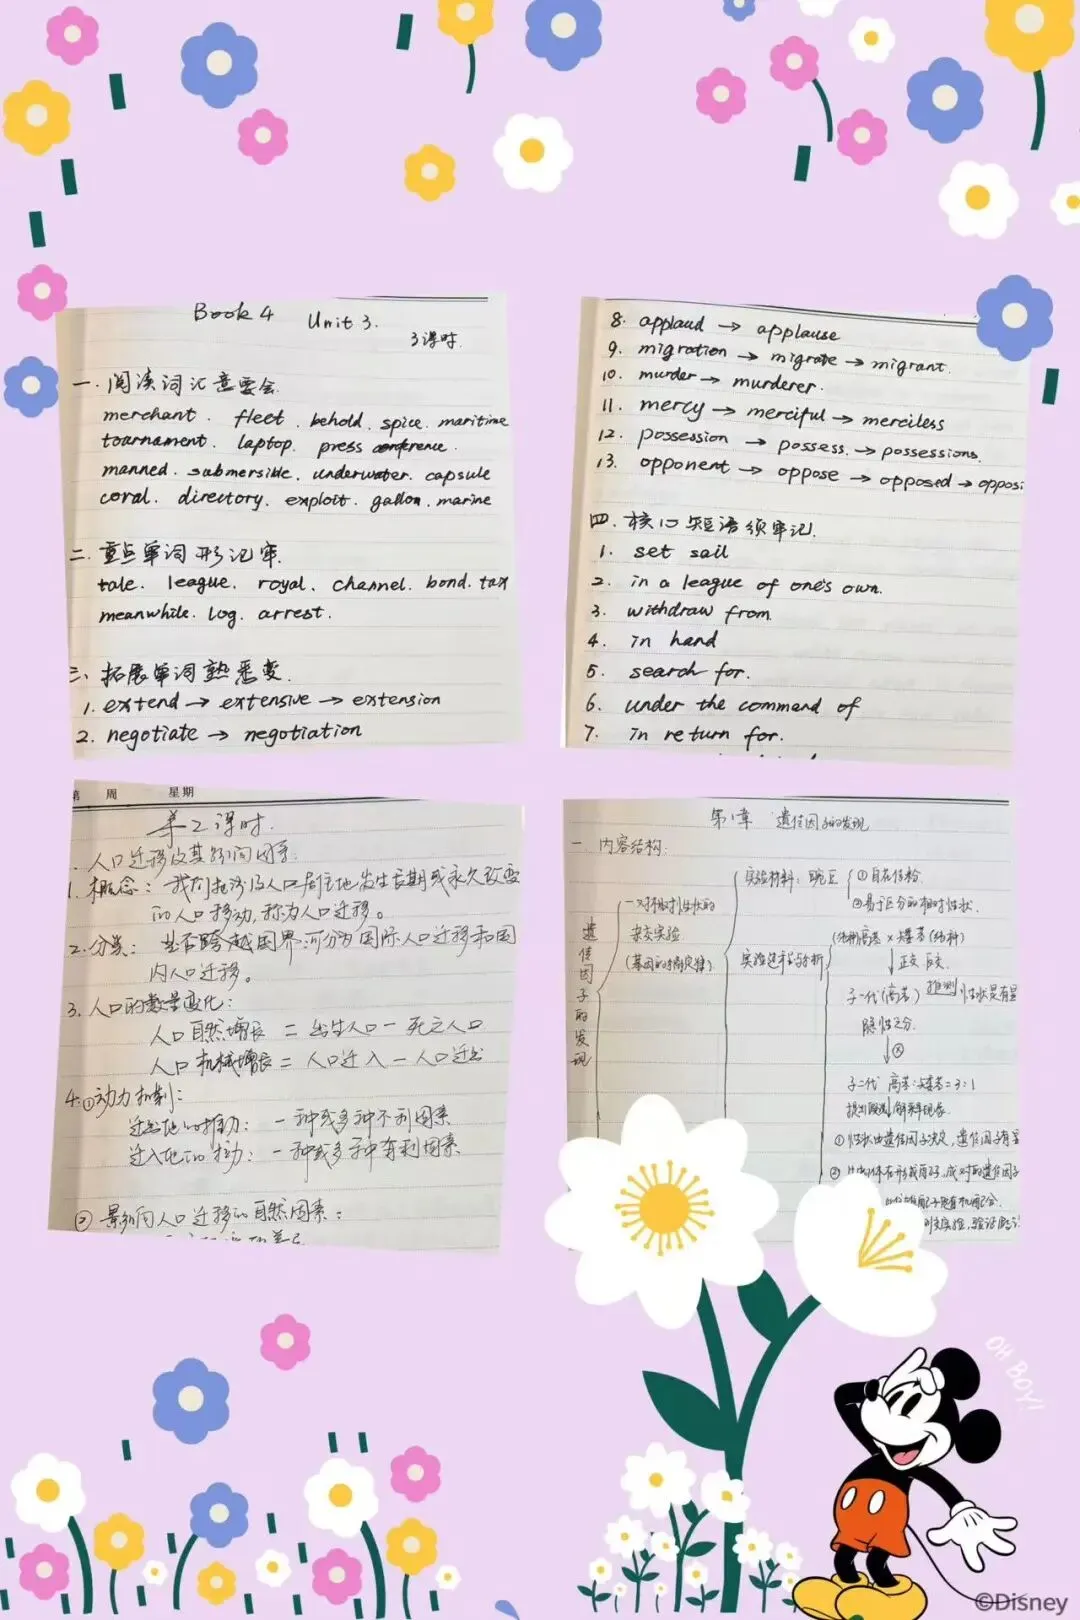 Book 4 Unit 3.
3课时.
一. 阅读词汇意要会.
merchant. fleet. behold. spice. maritime
tournament. laptop. press conference.
manned. submersible. underwater. capsule
coral. directory. exploit. gallon. marine
二. 重点单词形记牢.
tale. league. royal. channel. bond. tax
meanwhile. log. arrest.
三. 拓展单词熟悉变.
1. extend → extensive → extension
2. negotiate → negotiation
8. applaud → applause
9. migration → migrate → migrant.
10. murder → murderer.
11. mercy → merciful → merciless
12. possession → possess. → possessions.
13. opponent → oppose → opposed → opposi
四. 核心短语须牢记.
1. set sail
2. in a league of one's own.
3. withdraw from
4. in hand
5. search for.
6. under the command of
7. in return for.
第 周 星期
第2课时.
人口迁移及其影响因素.
1. 概念: 我们把涉及人口居住地发生长期或永久改变
的人口移动,称为人口迁移。
2. 分类: 是否跨越国界,可分为国际人口迁移和国
内人口迁移。
3. 人口的数量变化:
人口自然增长 = 出生人口 - 死亡人口
人口机械增长 = 人口迁入 - 人口迁出
4. ①动力机制:
迁出地的推力: 一种或多种不利因素
迁入地的拉力: 一种或多种有利因素
② 影响人口迁移的自然因素:
第1章 遗传因子的发现
一 内容结构:
遗传因子的发现
一对相对性状的
杂交实验
(基因的分离定律)
实验材料: 豌豆
①自花传粉
②易于区分的相对性状.
实验过程与分析
(纯种)高茎 × 矮茎(纯种)
↓ 正交 反交
子一代(高茎) 推测 性状是有显
隐性之分.
↓⊗
子二代 高茎:矮茎=3:1
提出假说 解释现象
①性状由遗传因子决定, 遗传因子有显
② 成对的遗传因子
实验,验证
OH BOY!
©Disney